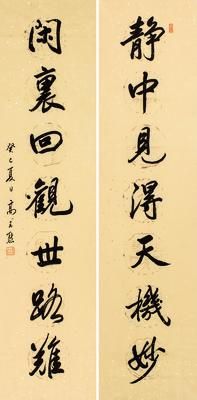 静中見得天機妙
閑裏回觀世路難
癸巳夏日高式熊